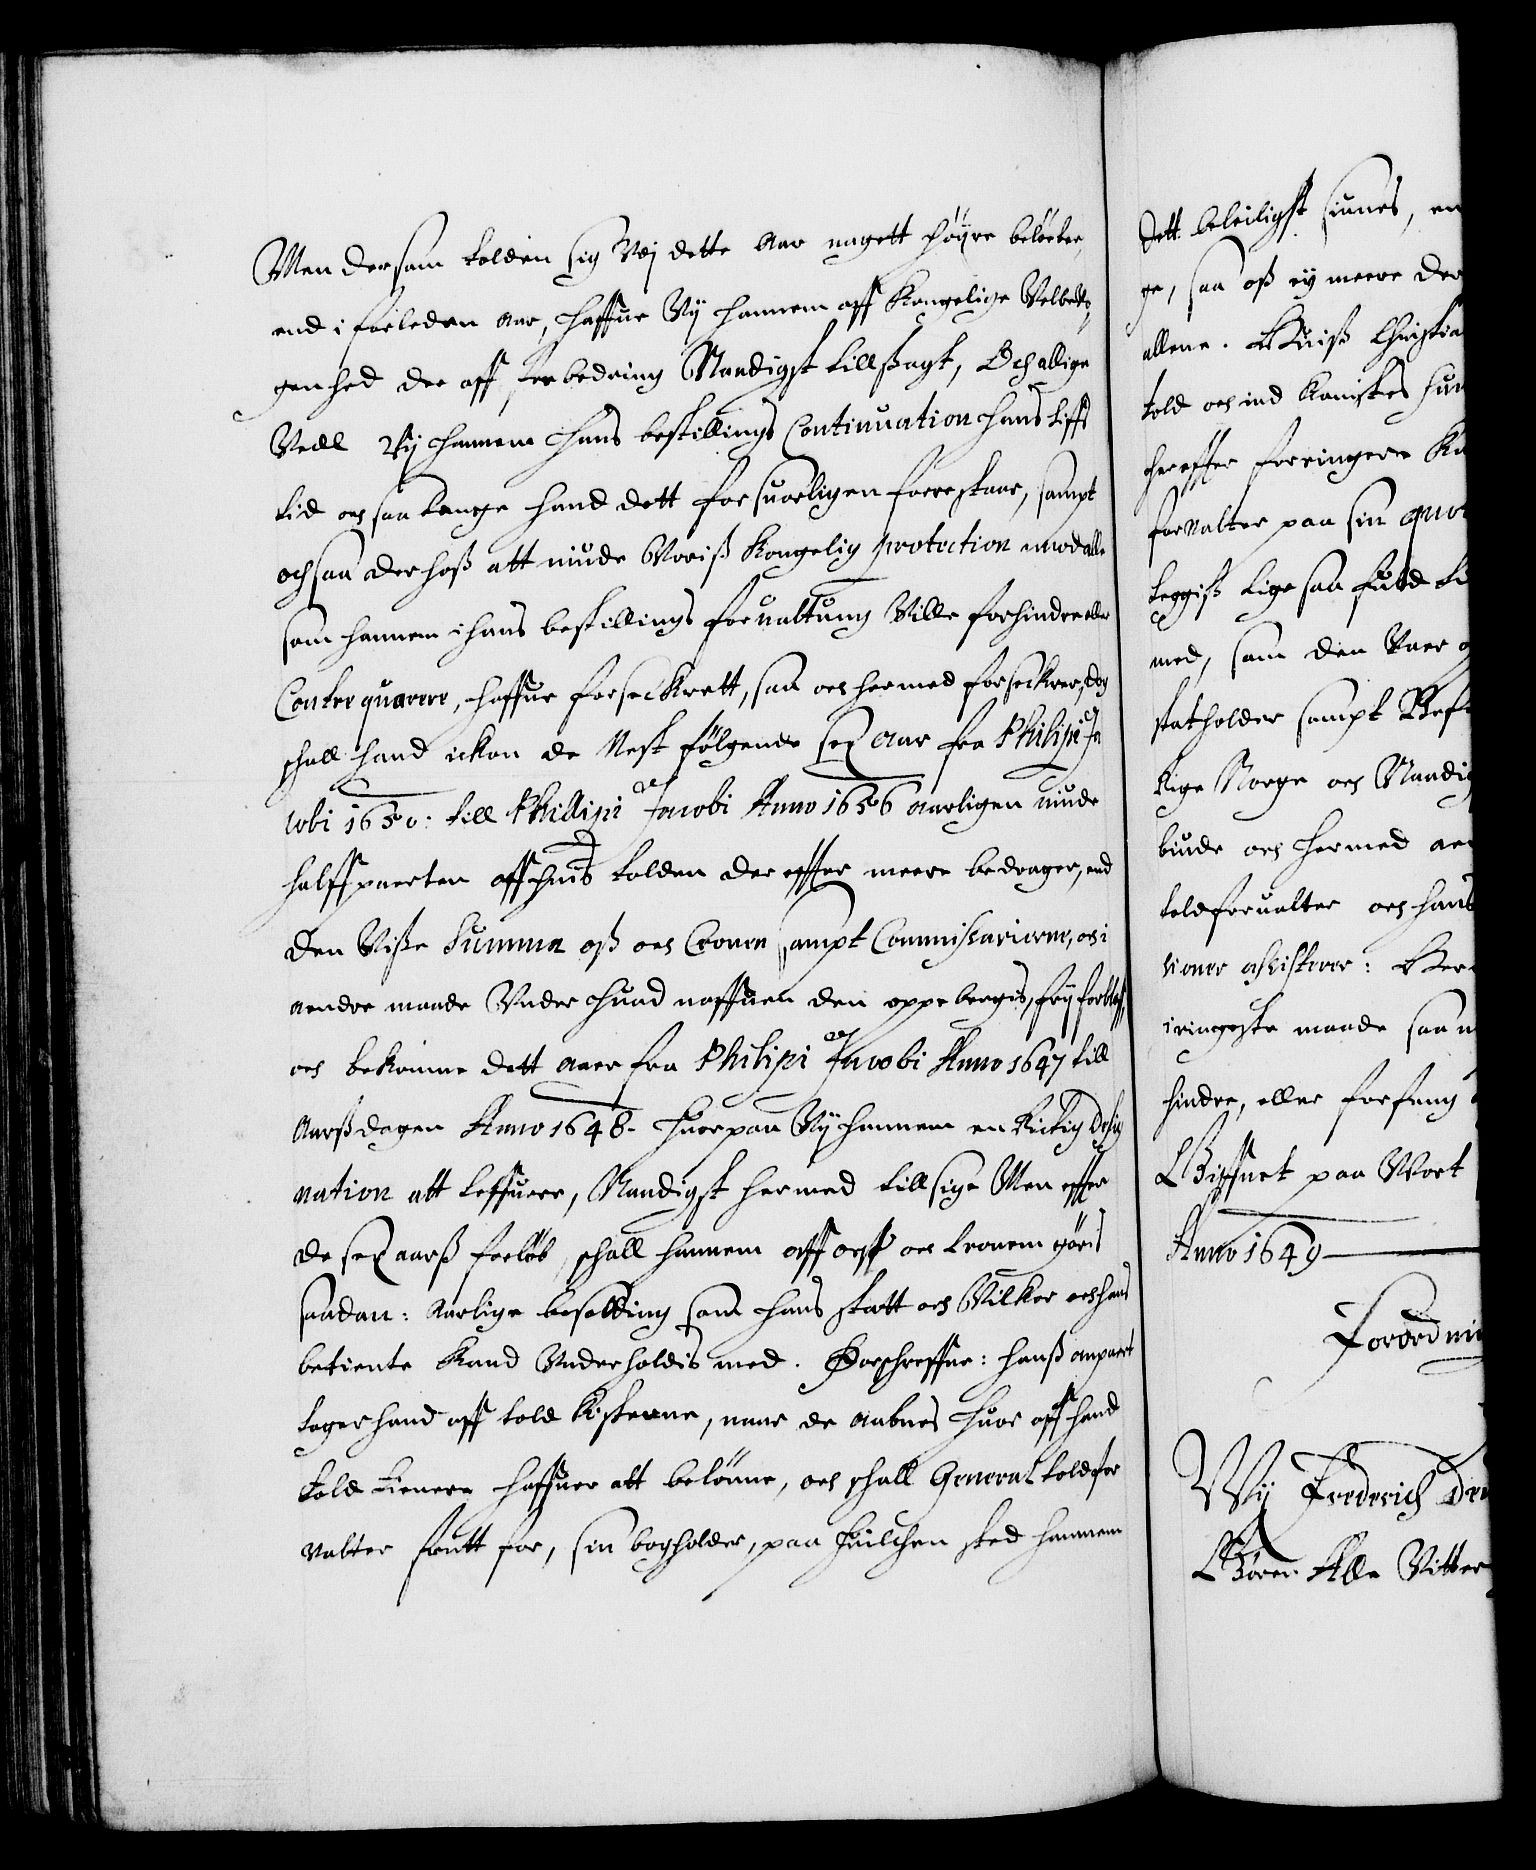 Men dersom tolden sig Vdj dette Aar nagett höyre belöber,
end i forleden aar, haffue Vij hannem aff Kongelige Velbeto,
genhed der aff forbedring Naadigst tillsagt, Och allige
Vell Vij hannem hans bestillings Continuation hans liffs
tid och saa lenge hand dett forsuorligen forrestaar, sampt
ochsaa derhoß att niude Voriß Kongelig protection imod alle
som hannem i hans bestillings foruualtung Ville forhindre eller
Conterquarere, haffue forseckrett, saa och hermed forseckrer, dog
schall hand ickon de Nest fölgende sex Aar fra Philipi Ja
cobi 1650: till Phillipi et Jacobi Anno 1656 aarligen niude
halffparten aff huis tolden der effter meere bedrager, end
den Viße Summa oß och Cronen sampt Commissarierne, och i
andre maade Vnder huad naffuen den oppebergis, frij forblef,
och bekomme dett aar fra Philipi et Jacobi Anno 1647 till
Aarßdagen Anno 1648. huorpaa Vij hannem en Richtig Desig
nation att leffuere, Naadigst hermed tillsige Men effter
de sex aarß forlöb, schall hannem aff oeß och Cronen giöris
saadan: Aarlige besolding som hans statt och Vilkor och hans
betiente Kand Vnderholdis med. Forschreffne: hanß anpaert
tager hand aff told kisterne, naar de aabnes huor aff hand
told tienere haffuer att belönne, och schall General toldfor
valter suare for, sin bogholder, paa huilchen sted hannem
dett beleiligst siunes, en
ge, saa oß ey meere der
allene. Huiß Christia
told och ind kaniskes hun
her effter forringere Ku
forvalter paa sin quo
leggiß lige saa fuld
med, som den Vaar
statholder sampt Bef
Rige Norge och Naadig
biude och hermed
toldforualter och hans
vioner
iringeste maade saa
hindre, eller forfang
Giffuet paa Vort
Anno 1649
Forordni
Wij Frederich den
Giöre Alle Vitter